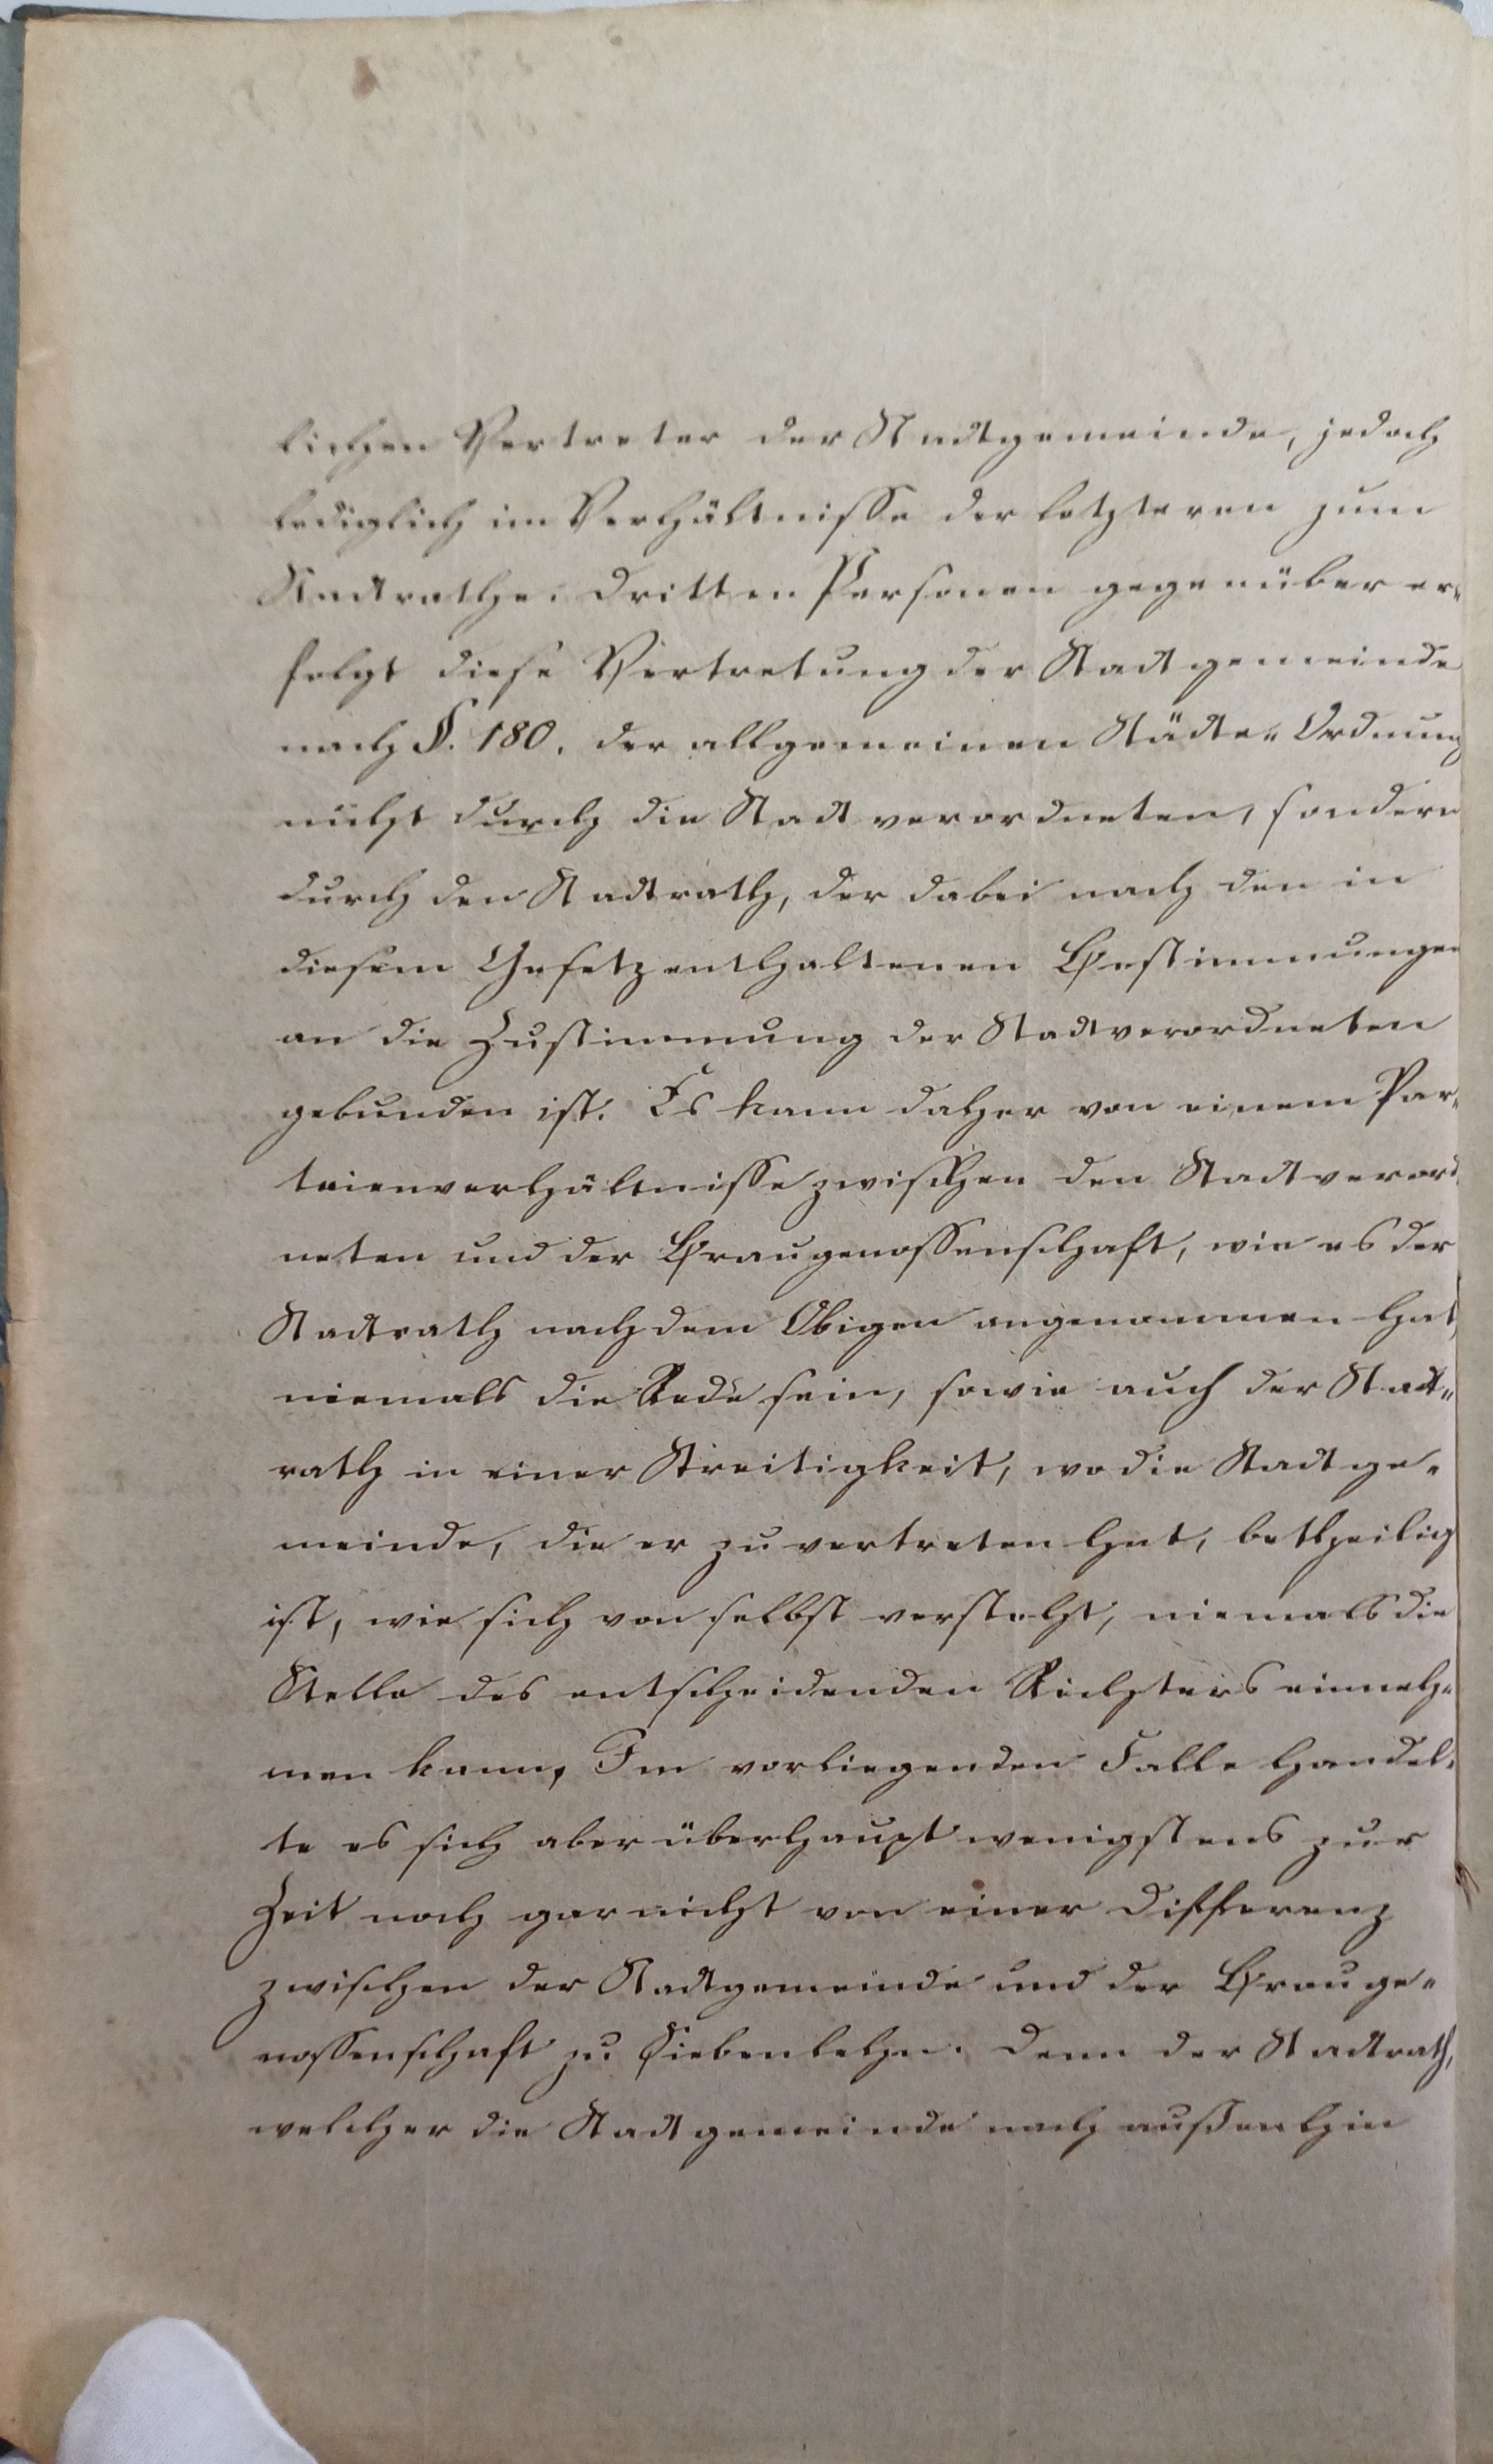 lichen Vertreter der Stadtgemeinde, jedoch
lediglich im Verhältnisse der letzteren zum
Stadtrathe. Dritten Personen gegenüber er„
folgt diese Vertretung der Stadtgemeinde
nach §. 180. der allgemeinen Städte„Ordnung
nicht durch die Stadtverordneten, sondern
durch den Stadtrath, der dabei nach den in
diesem Gesetz enthaltenen Bestimmungen
an die Zustimmung der Stadtverordneten
gebunden ist. Es kann daher von einem Par„
teienverhältnisse zwischen den Stadtverord
neten und der Braugenossenschaft, wie es der
Stadtrath nach dem Obigen angenommen hat,
niemals die Rede sein, sowie auch der Stadt„
rath in einer Streitigkeit, wo die Stadtge„
meinde, die er zu vertreten hat, betheilig
ist, wie sich von selbst versteht, niemals die
Stelle des entscheidenden Richters einneh„
men kann. Im vorliegenden Falle handel„
te es sich aber überhaupt wenigstens zur
Zeit noch gar nicht von einer Differenz
zwischen der Stadtgemeinde und der Brauge„
nossenschaft zu Siebenlehn. Denn der Stadtrath,
welcher die Stadtgemeinde nach außenhin